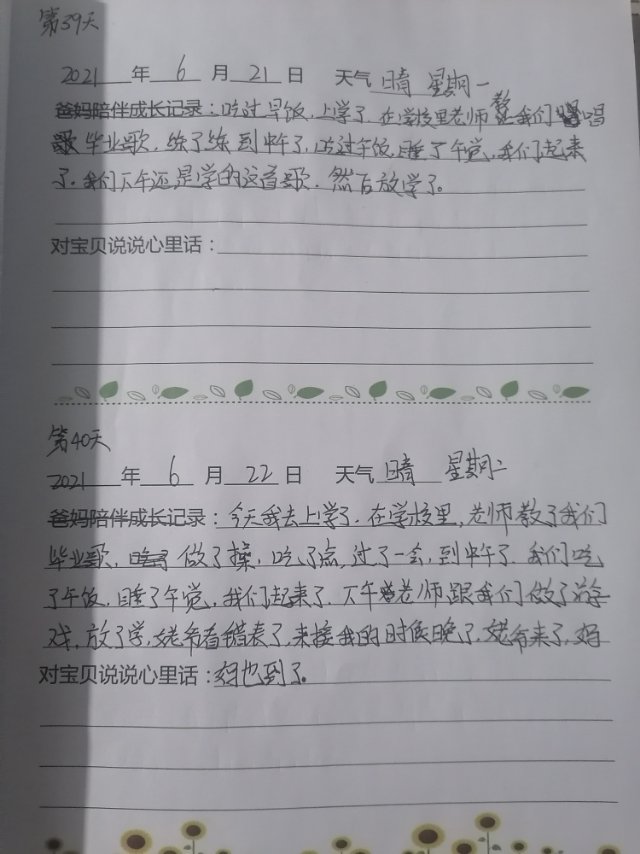 第39天
2021年6月21日 天气晴 星期一
爸妈陪伴成长记录：吃过早饭，上学了．在学校里老师教我们唱
毕业歌，练了练到中午了，吃过午饭，睡了午觉，我们起来
了．我们下午还是学的这首歌．然后放学了。
对宝贝说说心里话：
第40天
2021年6月22日 天气晴 星期二
爸妈陪伴成长记录：今天我去上学了．在学校里，老师教了我们
毕业歌，做了操，吃了点，过了一会，到中午了．我们吃
了午饭，睡了午觉，我们起来了．下午老师跟我们做了游
戏，放了学，姥爷看错表了，来接我的时候晚了，姥爷来了，妈
对宝贝说说心里话：妈也到了。